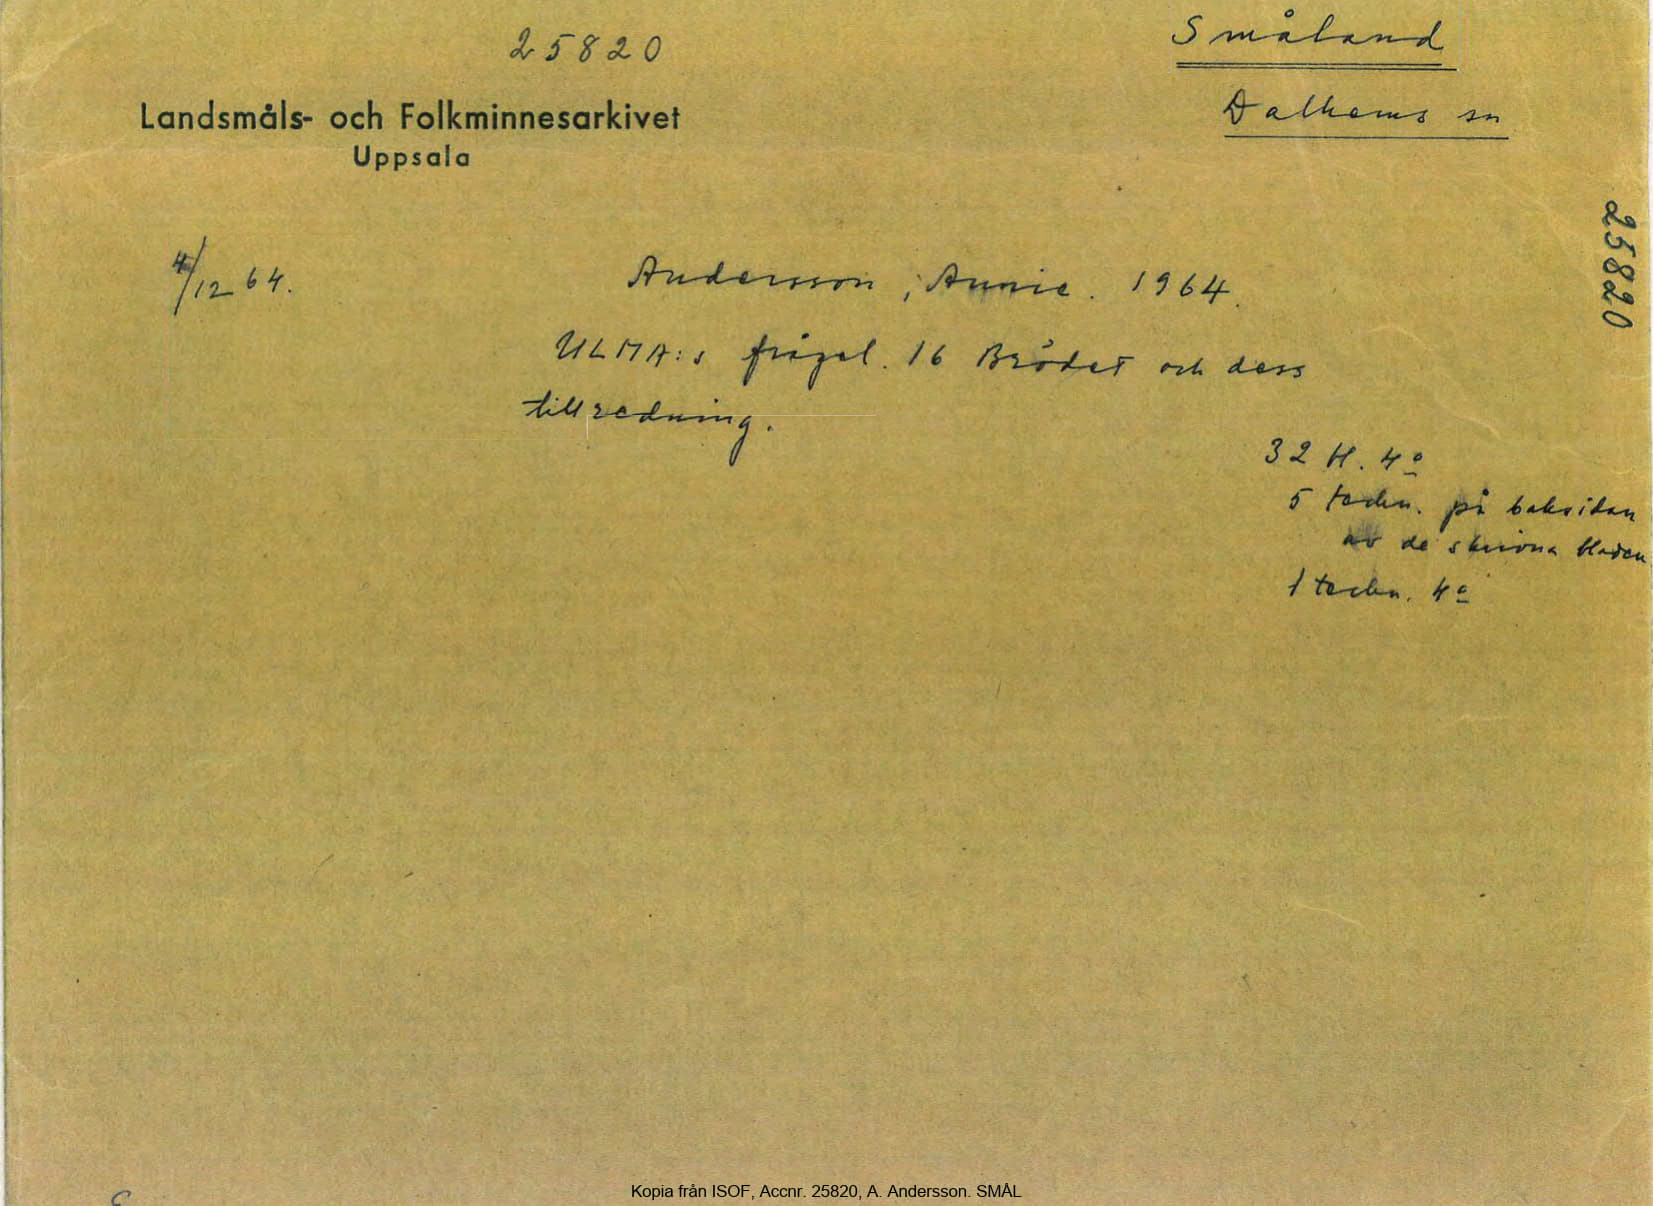 25820
Småland
Landsmåls- och Folkminnesarkivet
Uppsala
Dalhems sn
25820
4/12 64.
Andersson, Annie. 1964.
ULMA:s frågel. 16 Brödet och dess
tillredning.
32 bl. 4º
5 teckn. på baksidan
av de skrivna bladen
1 teckn. 4º
Kopia från ISOF, Accnr. 25820, A. Andersson. SMÅL